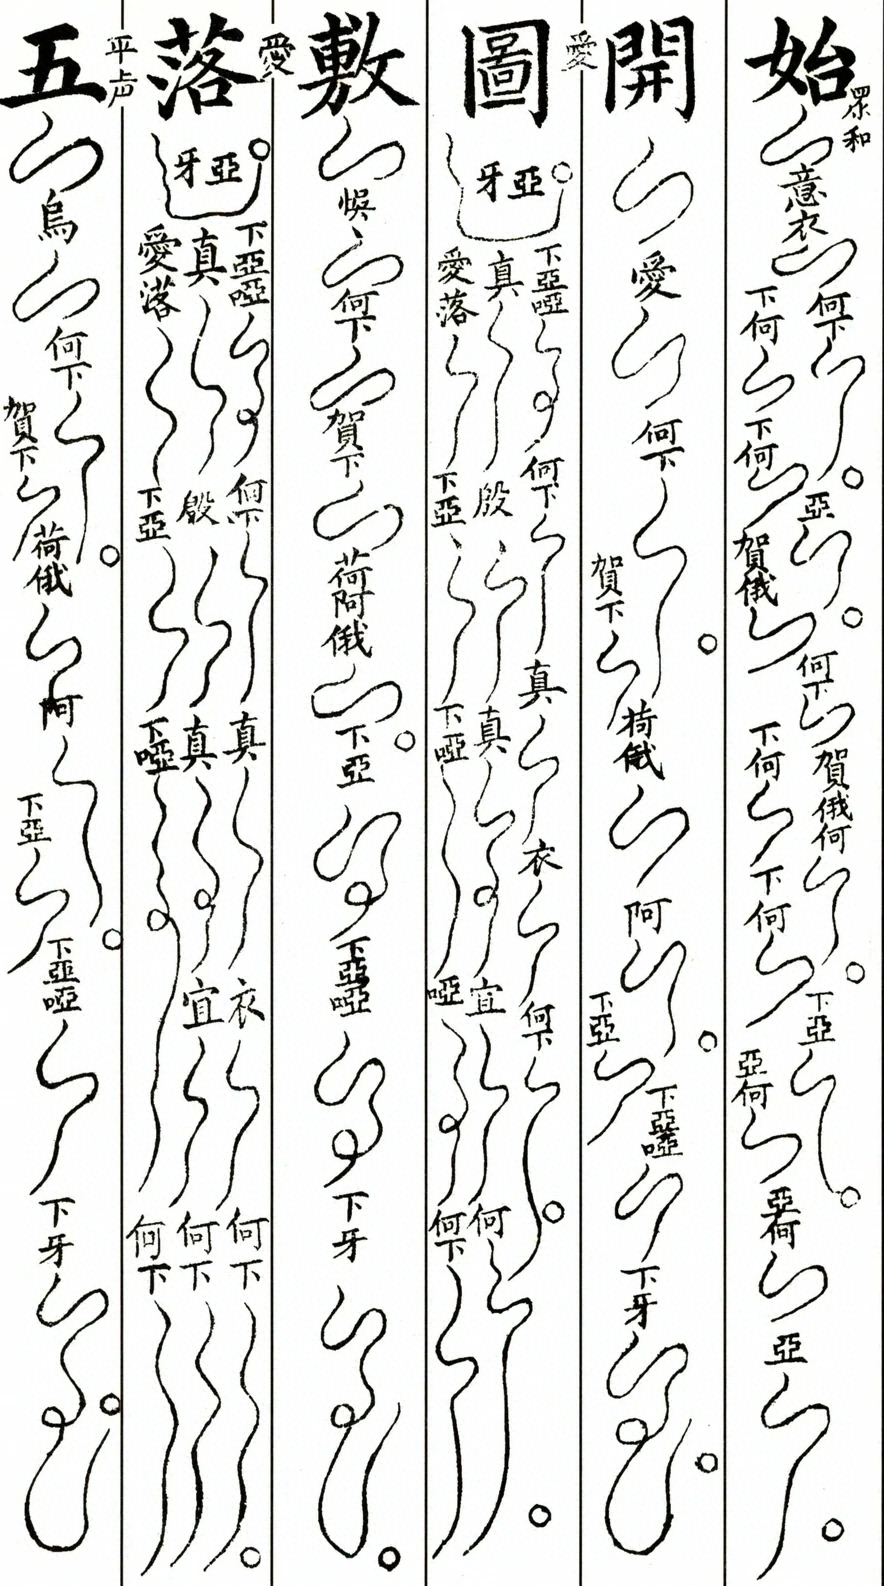 始
眾和
意衣
何下 亞 何下 賀俄何 下亞
下何 下何 賀俄 下何 下何 亞何 亞何 亞
開
愛 何下
賀下 荷俄 阿
下亞 下亞啞 下牙
愛
圖
亞牙
下亞啞 何下 真 衣 何下
真 殷 真 宜 何
愛落 下亞 下啞 啞 何下
敷
悞 何下 賀下 荷阿俄 下亞 下亞啞 下牙
愛
落
亞牙
下亞啞 何下 真 衣 何下
真 殷 真 宜 何下
愛落 下亞 下啞 何下
平声
五
烏 何下
賀下 荷俄 阿
下亞 下亞啞 下牙